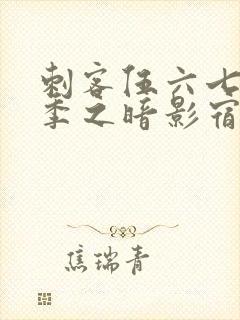 刺客伍六七
季之暗影宿
焦瑞青